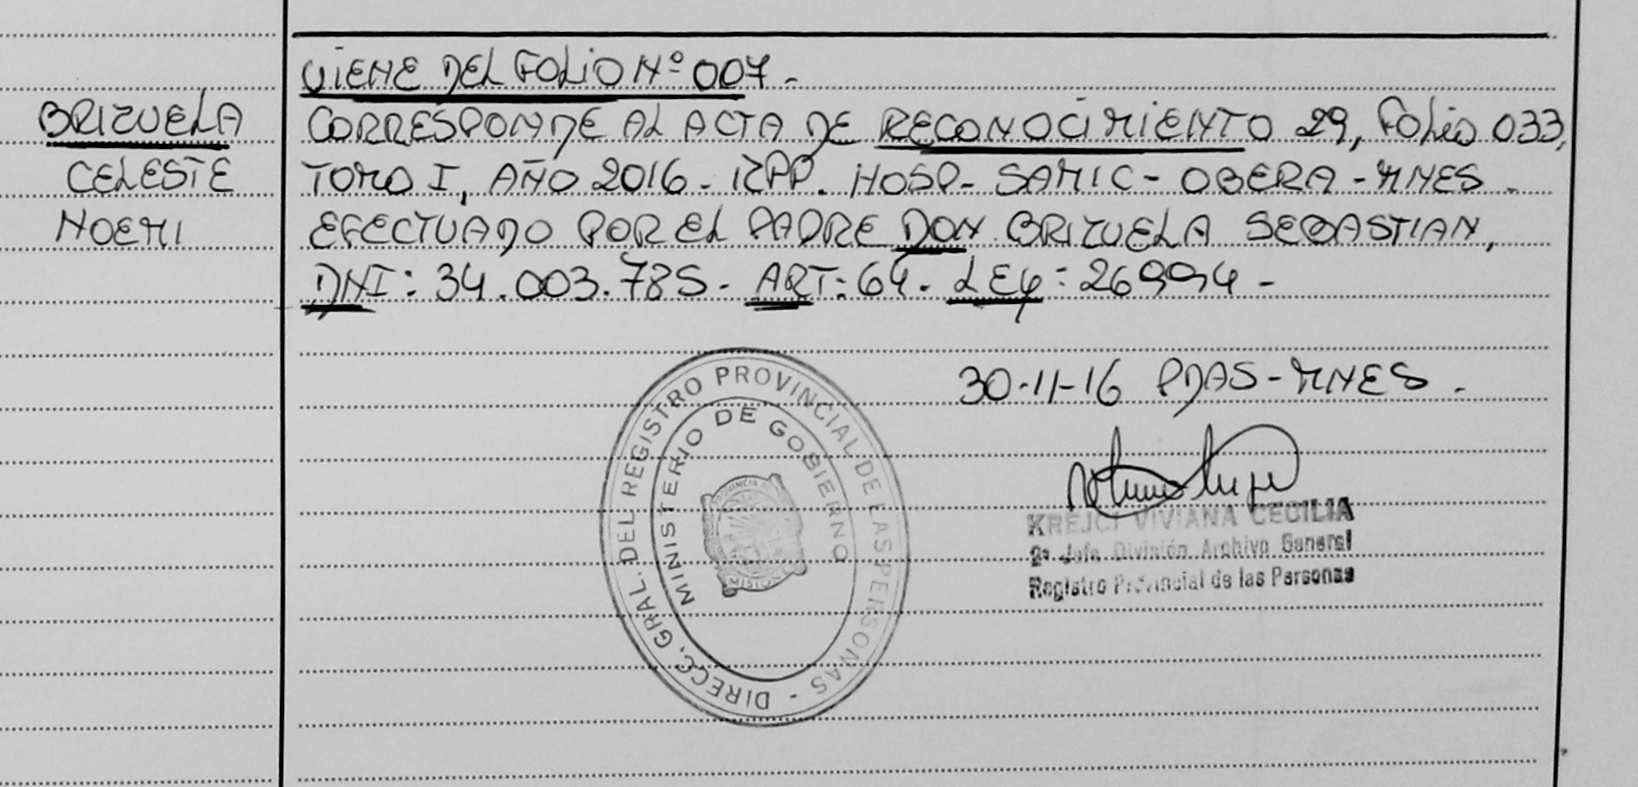 VIENE DEL FOLIO Nº 007-
BRIZUELA
CELESTE
NOEMI
CORRESPONDE AL ACTA DE RECONOCIMIENTO 29, FOLIO 033,
TOMO I, AÑO 2016- RPP. HOSP- SAMIC- OBERA -MNES-
EFECTUADO POR EL PADRE DON BRIZUELA SEBASTIAN,
DNI: 34.003.785- ART: 64- LEY: 26994-
30-11-16 PDAS-MNES-
DIRECC. GRAL. DEL REGISTRO PROVINCIAL DE LAS PERSONAS -
MINISTERIO DE GOBIERNO
PROVINCIA
MISIONES
KREJCI VIVIANA CECILIA
2ª Jefa División Archivo General
Registro Provincial de las Personas